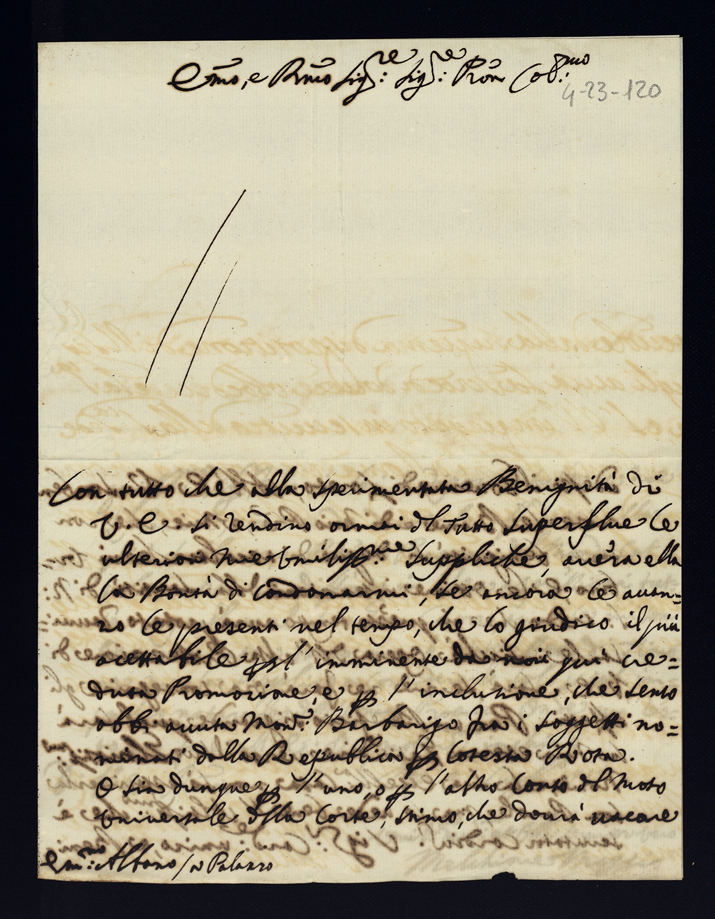 Em̃o, e Rmo̅ Sigre: Sigre: Pron̅ Col:mo
4-23-120
Con tutto che alla sperimentata Benignità di
V. E. si rendino ormai del tutto superflue le
ulteriori mie Umiliss:me Suppliche, averà ella
la Bontà di condonarmi, se ancora le avan=
zo le presenti nel tempo, che lo giudico il più
acettabile p l'imminente da noi qui cre=
duta Promozione, e p l'inclusione, che sento
abbi avuta Monr: Barbarigo fra i soggetti no=
minati dalla Republica p cotesta Rota.
O sia dunque p l'uno, o p l'altro Conto del Moto
Universale della Corte, stimo, che dovrà vacare
Emo: Albano / a Palazzo